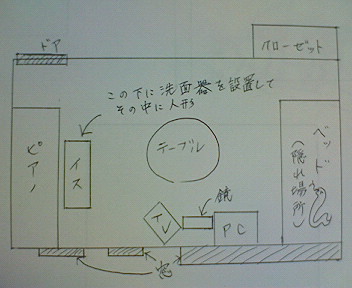 ドア
クローゼット
この下に洗面器を設置して
その中に人形
ピアノ
イス
テーブル
ベッド
(隠れ場所)
鏡
TV
PC
窓